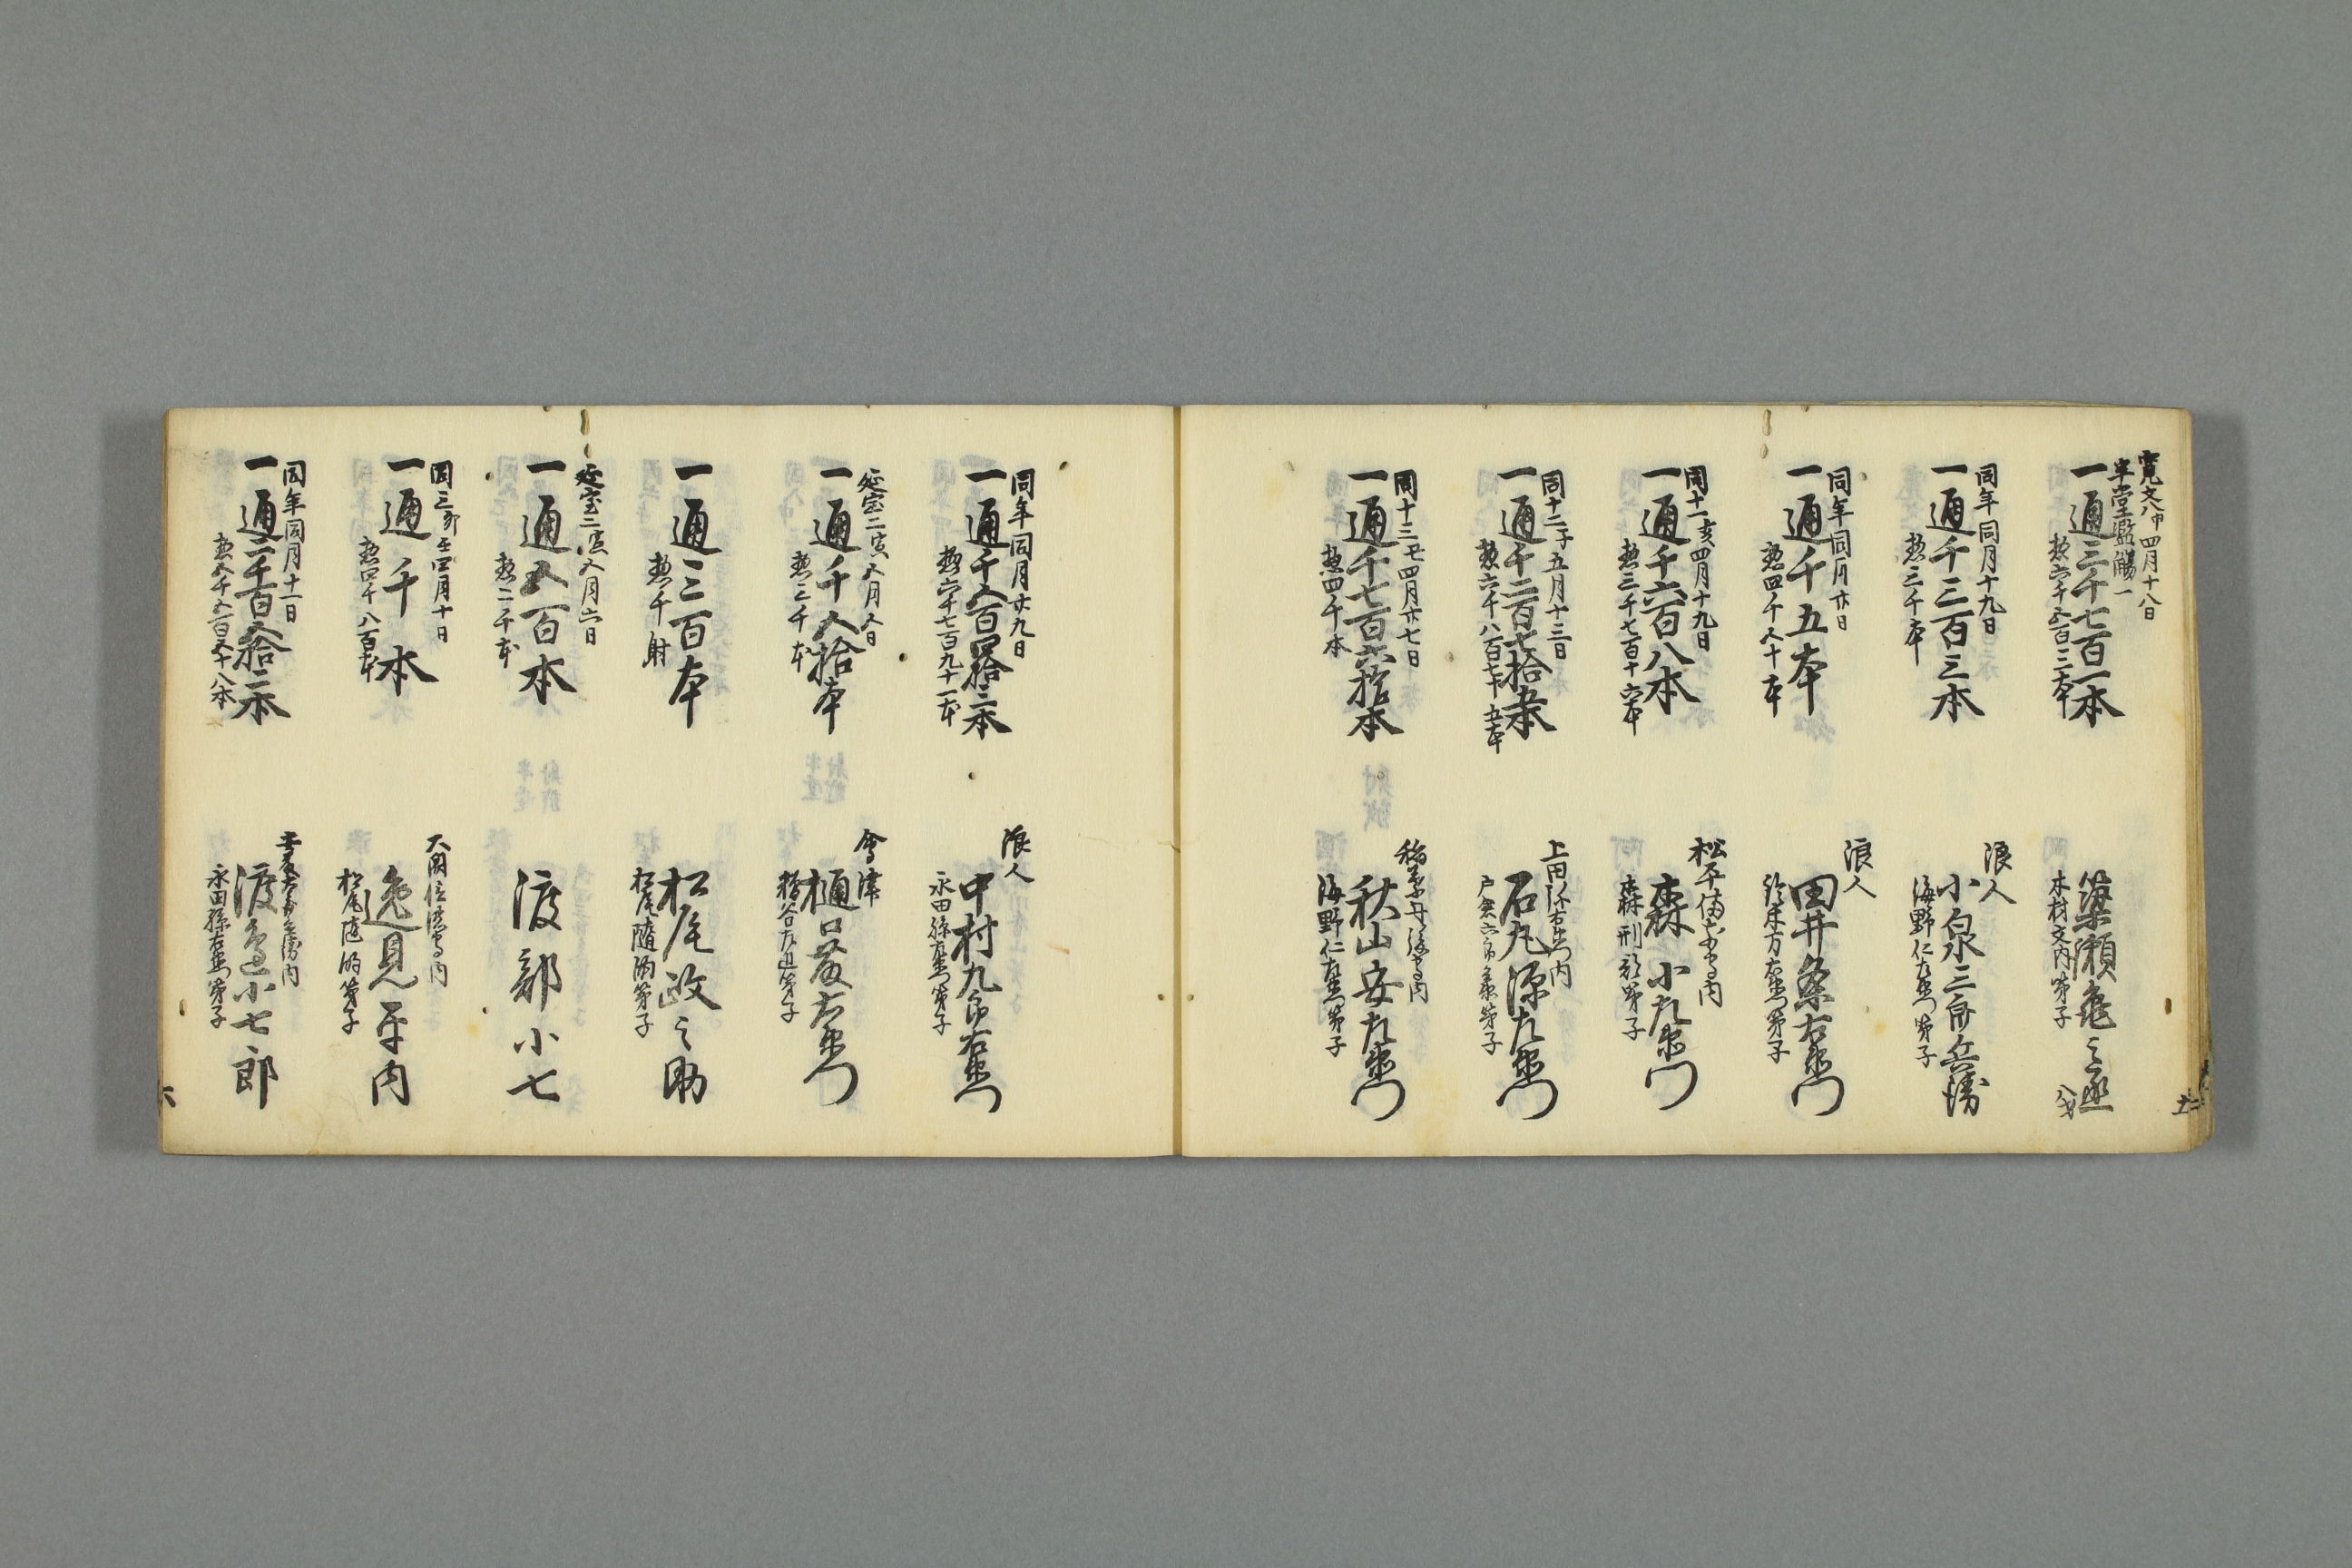 寛文八申四月十八日
半堂濫觴一
一通三千七百一本
惣六千五百三本
築瀬亀之丞
八才
木村文内弟子
同年同月十九日
一通千三百三本
惣三千本
浪人
小泉三郎兵衛
海野仁左衛門弟子
同年同月廿日
一通千五本
惣四千八十本
浪人
田井粂右衛門
鈴木万右衛門弟子
同十一亥四月十九日
一通千六百八本
惣三千七百十六本
松平備前守内
森小左衛門
森刑部弟子
同十二子五月十三日
一通千二百七拾五本
惣六千八百七十五本
上田弥右衛門内
石丸源左衛門
弟子
同十三丑四月廿七日
一通千七百六拾本
惣四千本
稲葉丹後守内
秋山安左衛門
海野仁左衛門弟子
同年同月廿九日
一通千五百四拾三本
惣六千七百九十一本
浪人
中村九郎右衛門
永田孫右衛門弟子
延宝二寅五月五日
一通千五拾本
惣三千本
会津
樋口藤右衛門
糟谷左近弟子
一通三百本
惣千射
松尾政之助
松尾随浦弟子
延宝二寅五月六日
一通五百本
惣二千本
渡部小七
同三卯壬四月十日
一通千本
惣四千八百本
大関信濃守内
逸見平内
松尾随浦弟子
同年同月十一日
一通二千百五拾二本
惣五千五百五十八本
渡邊小七郎
永田孫右衛門弟子
六